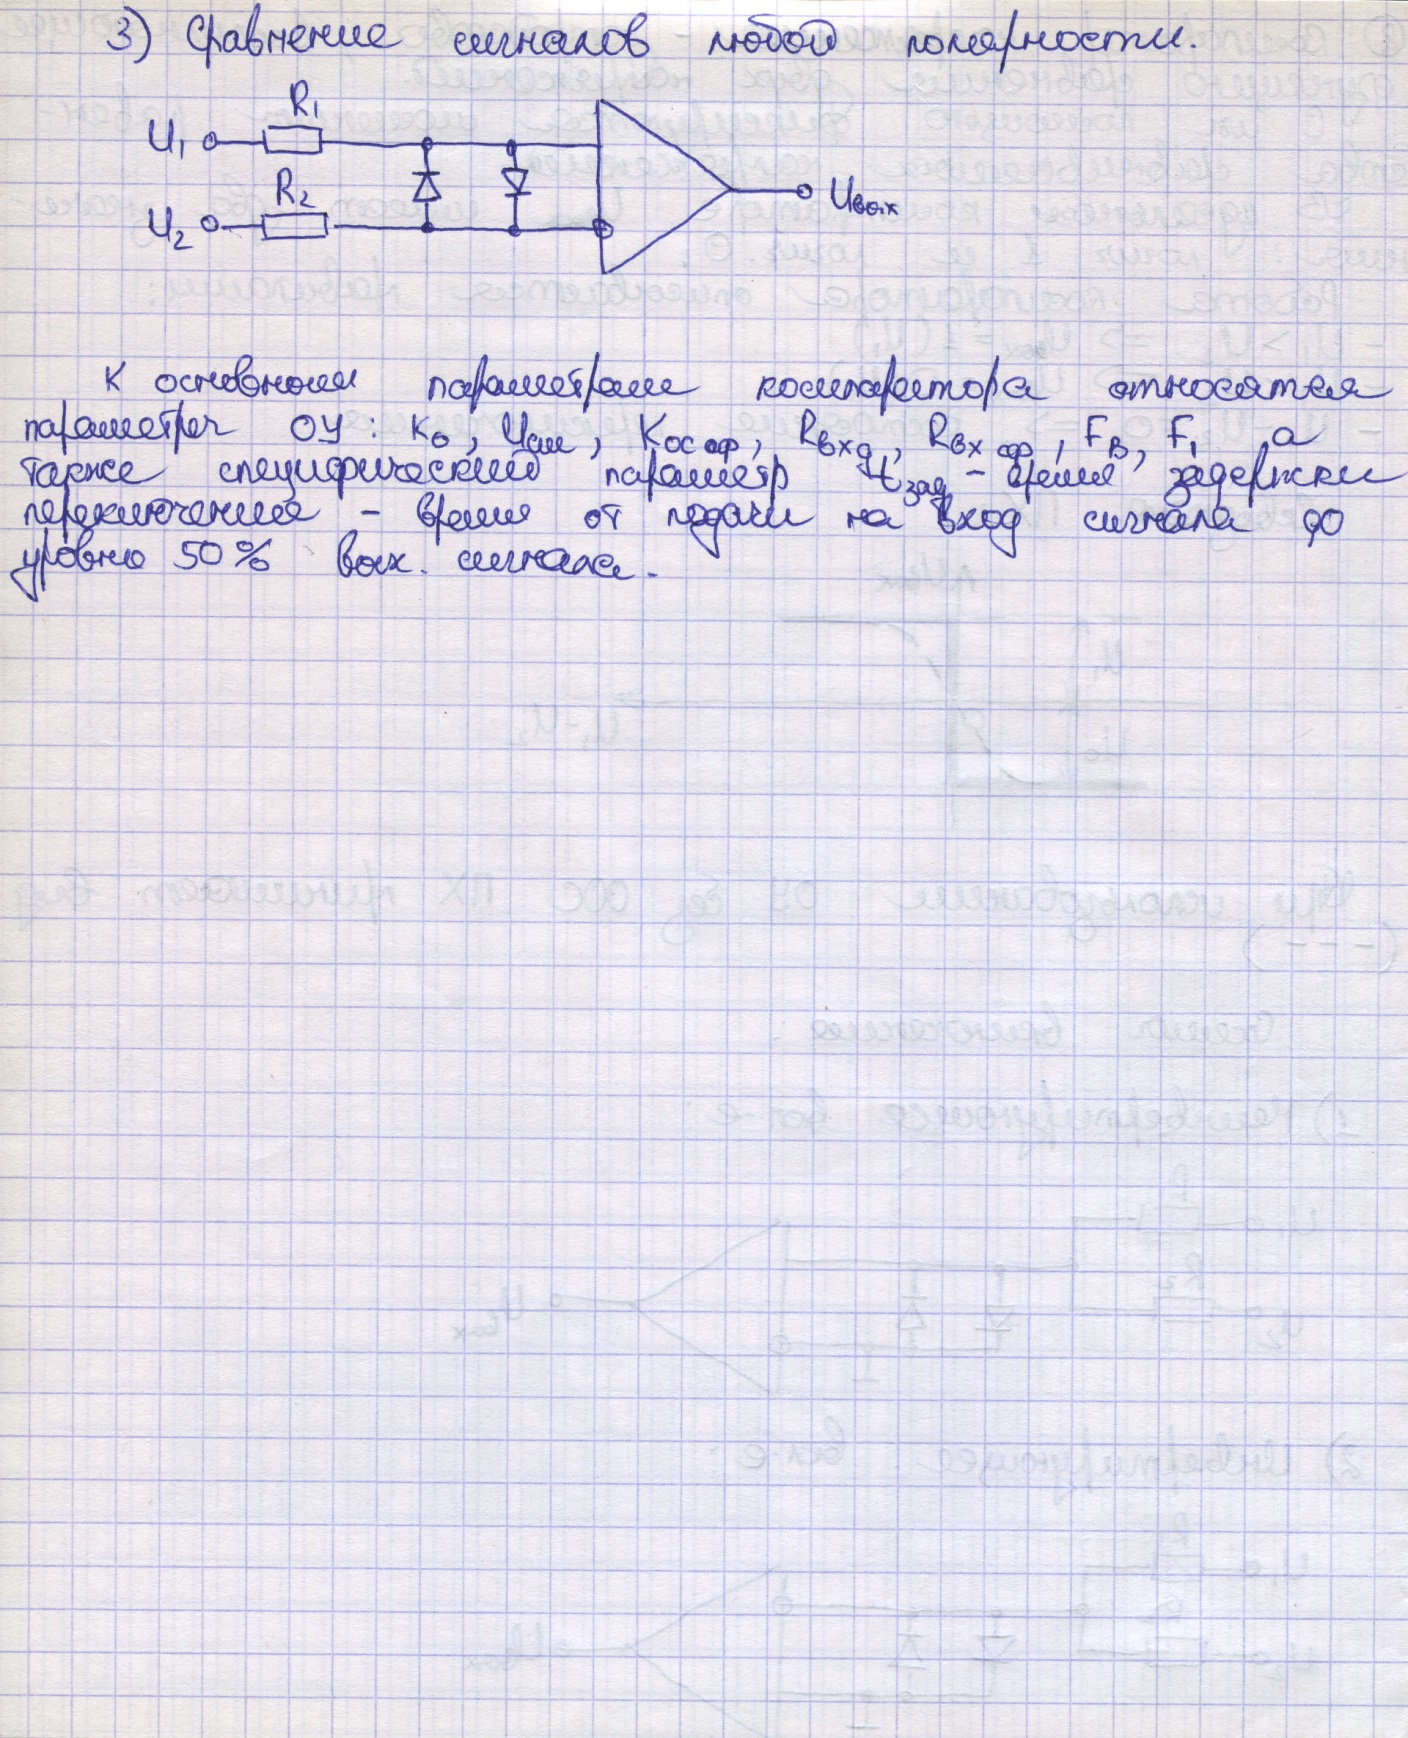 3) Сравнение сигналов любой полярности.
R₁
U₁
R₂
U₂
Uвых
К основным параметрам компаратора относятся
параметры ОУ: K₀, Uсм, Kос сф, Rвх д, Rвх сф, Fв, F₁, а
также специфический параметр tзад - время задержки
переключения - время от подачи на вход сигнала до
уровню 50% вых. сигнала.